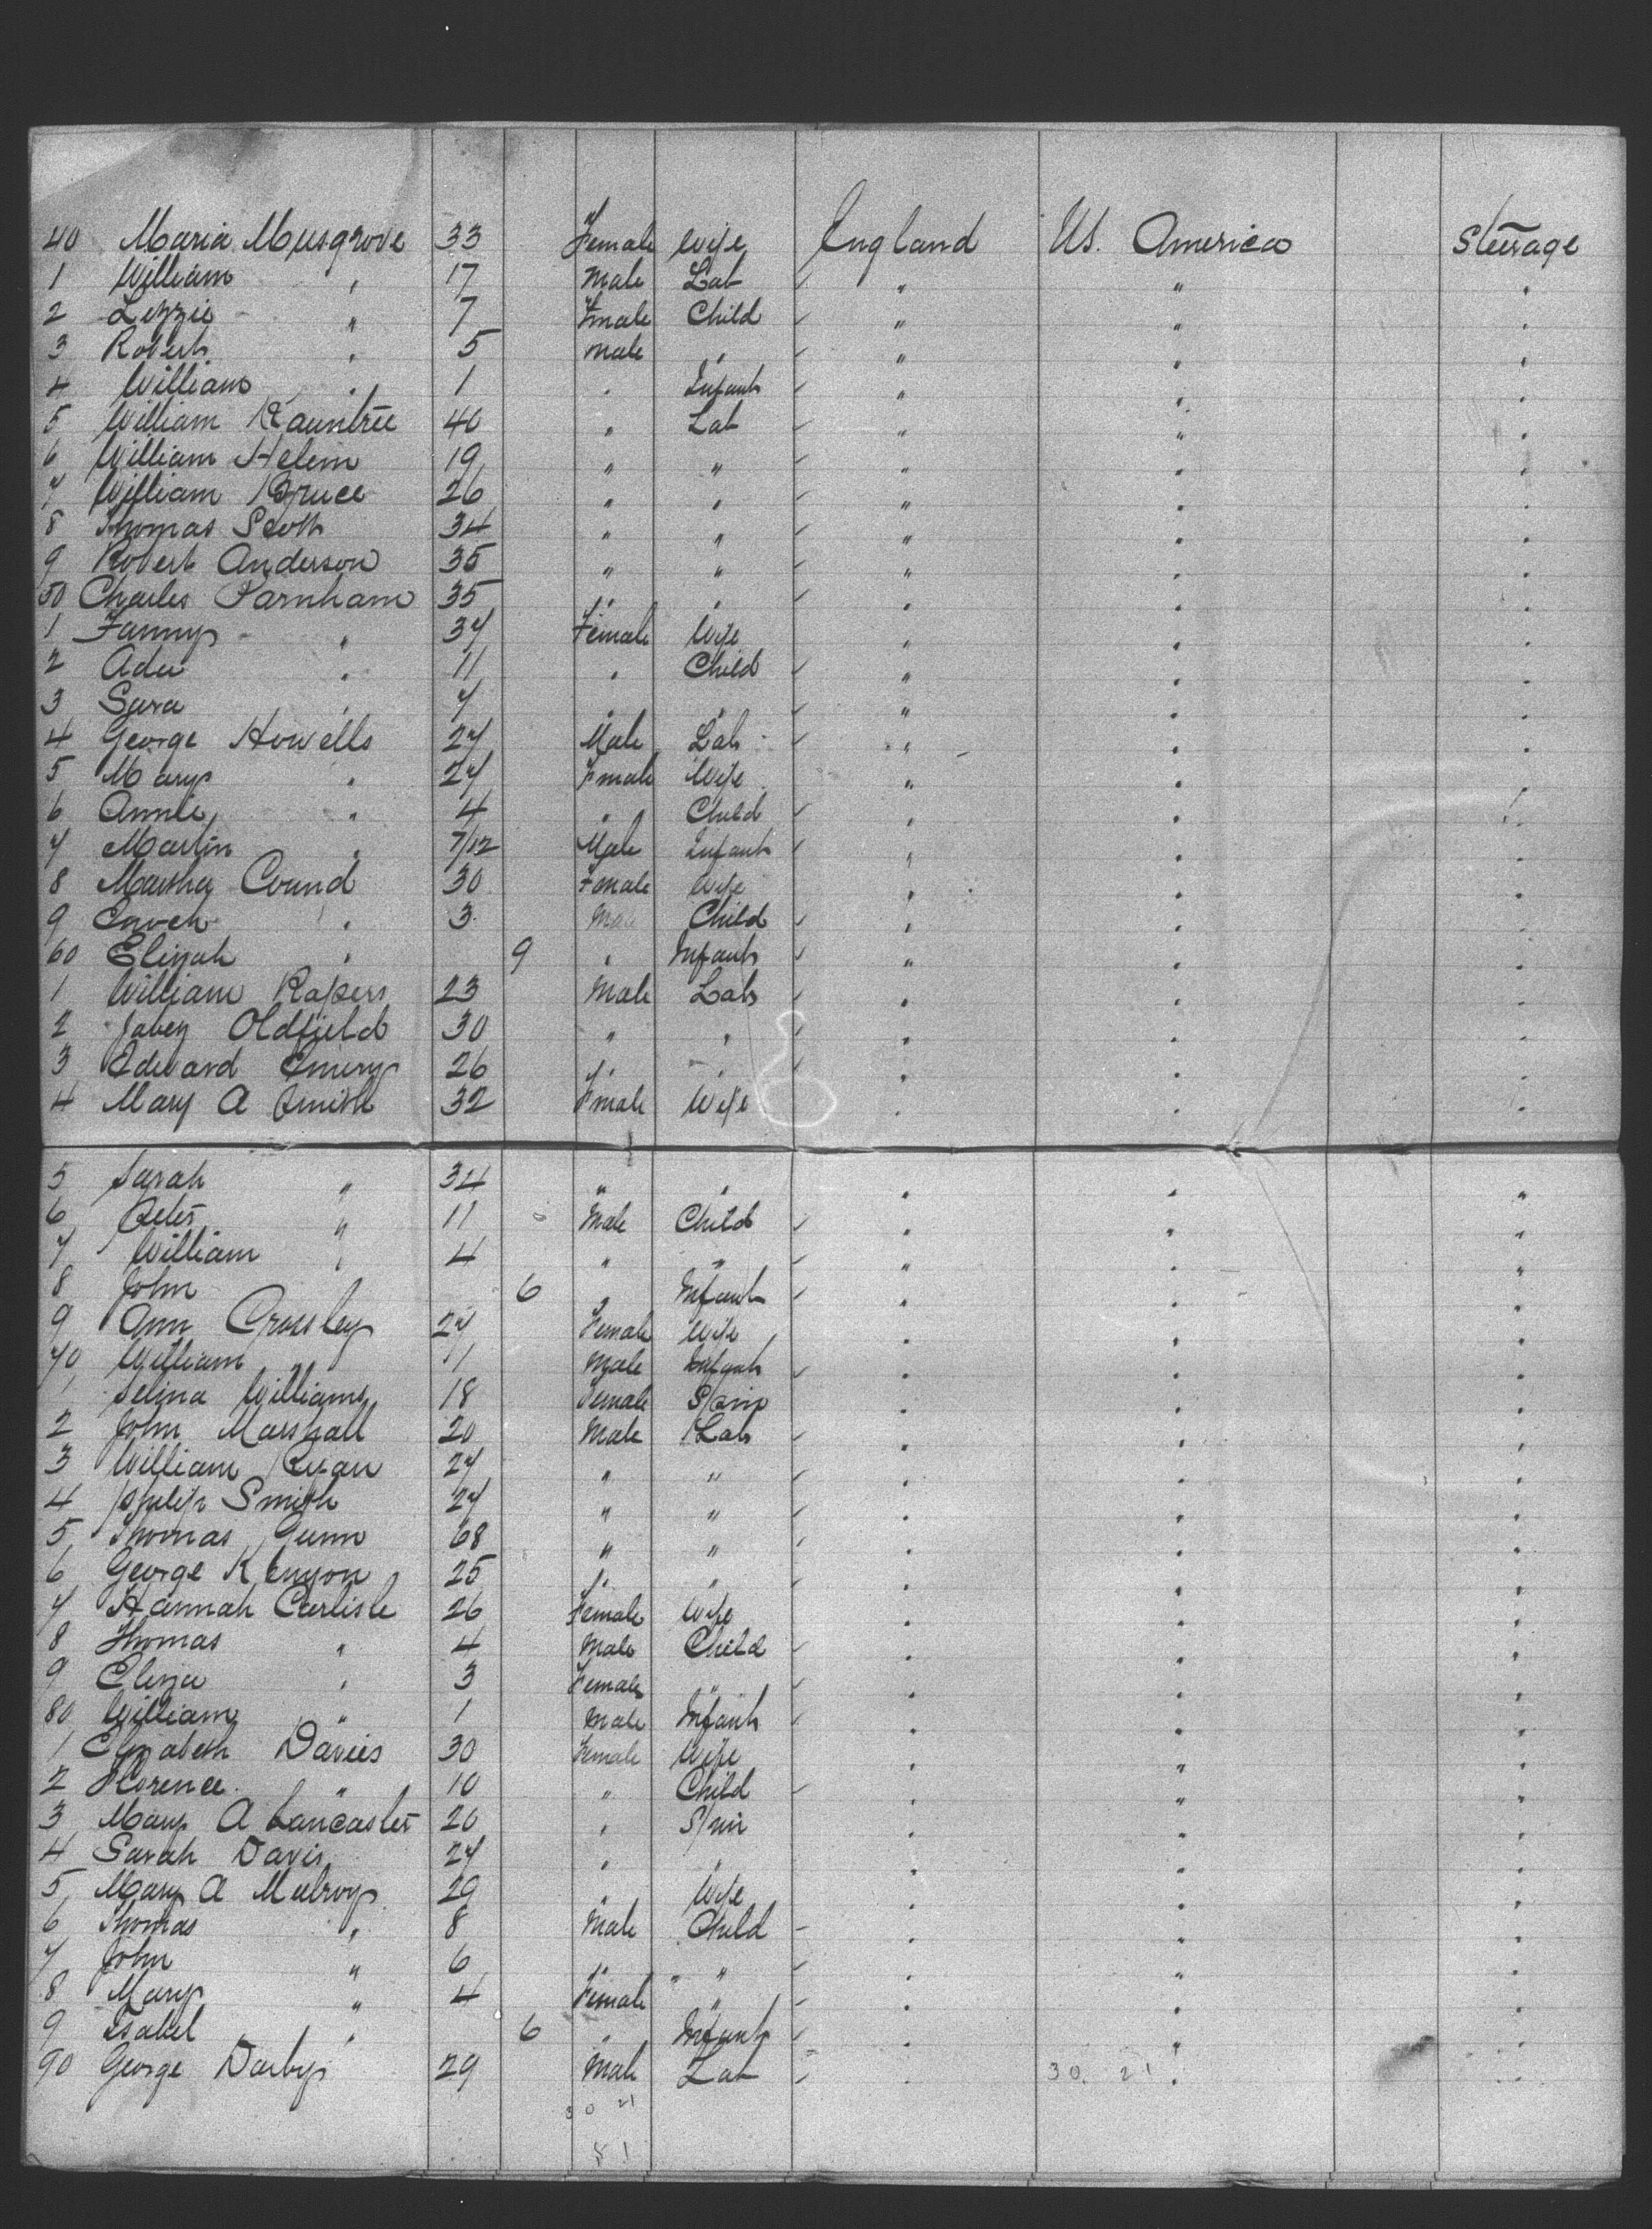 40 Maria Musgrove 33 Female Wife England US. America Steerage
1 William " 17 Male Lab " " "
2 Lizzie " 7 Female Child " " "
3 Robert " 5 male " " " "
4 William " 1 " Infant " " "
5 William Rauntree 40 " Lab " " "
6 William Helem 19 " " " " "
7 William Bruce 26 " " " " "
8 Thomas Scott 34 " " " " "
9 Robert Anderson 35 " " " " "
50 Charles Parnham 35 " " " " "
1 Fanny " 37 Female Wife " " "
2 Ada " 11 " Child " " "
3 Sara " 7 " " " " "
4 George Howells 27 Male Lab " " "
5 Mary " 27 Female Wife " " "
6 Annie " 4 " Child " " "
7 Martin " 7/12 Male Infant " " "
8 Martha Cound 30 Female Wife " " "
9 Enoch " 3 Male Child " " "
60 Elijah " 9 " Infant " " "
1 William Rapers 23 Male Lab " " "
2 Jabez Oldfield 30 " " " " "
3 Edward Emery 26 " " " " "
4 Mary A Smith 32 Female Wife " " "
5 Sarah " 34 " " " " "
6 Peter " 11 Male Child " " "
7 William " 4 " " " " "
8 John 6 " Infant " " "
9 Ann Crossley 27 Female Wife " " "
70 William " 11 Male Infant " " "
1 Selina Williams 18 Female Spin " " "
2 John Marshall 20 Male Lab " " "
3 William Ryan 27 " " " " "
4 Philip Smith 27 " " " " "
5 Thomas Gunn 68 " " " " "
6 George Kenyon 25 " " " " "
7 Hannah Carlisle 26 Female Wife " " "
8 Thomas " 4 Male Child " " "
9 Eliza " 3 Female " " " "
80 William " 1 Male Infant " " "
1 Elizabeth Davies 30 Female Wife " " "
2 Florence " 10 " Child " " "
3 Mary A Lancaster 20 " Spin " " "
4 Sarah Davis 27 " " " " "
5 Mary A Mulroy 29 " Wife " " "
6 Thomas " 8 Male Child " " "
7 John " 6 " " " " "
8 Mary " 4 Female " " " "
9 Isabel " 6 " Infant " " "
90 George Darby 29 Male Lab " 30. 21 " "
30 21
81